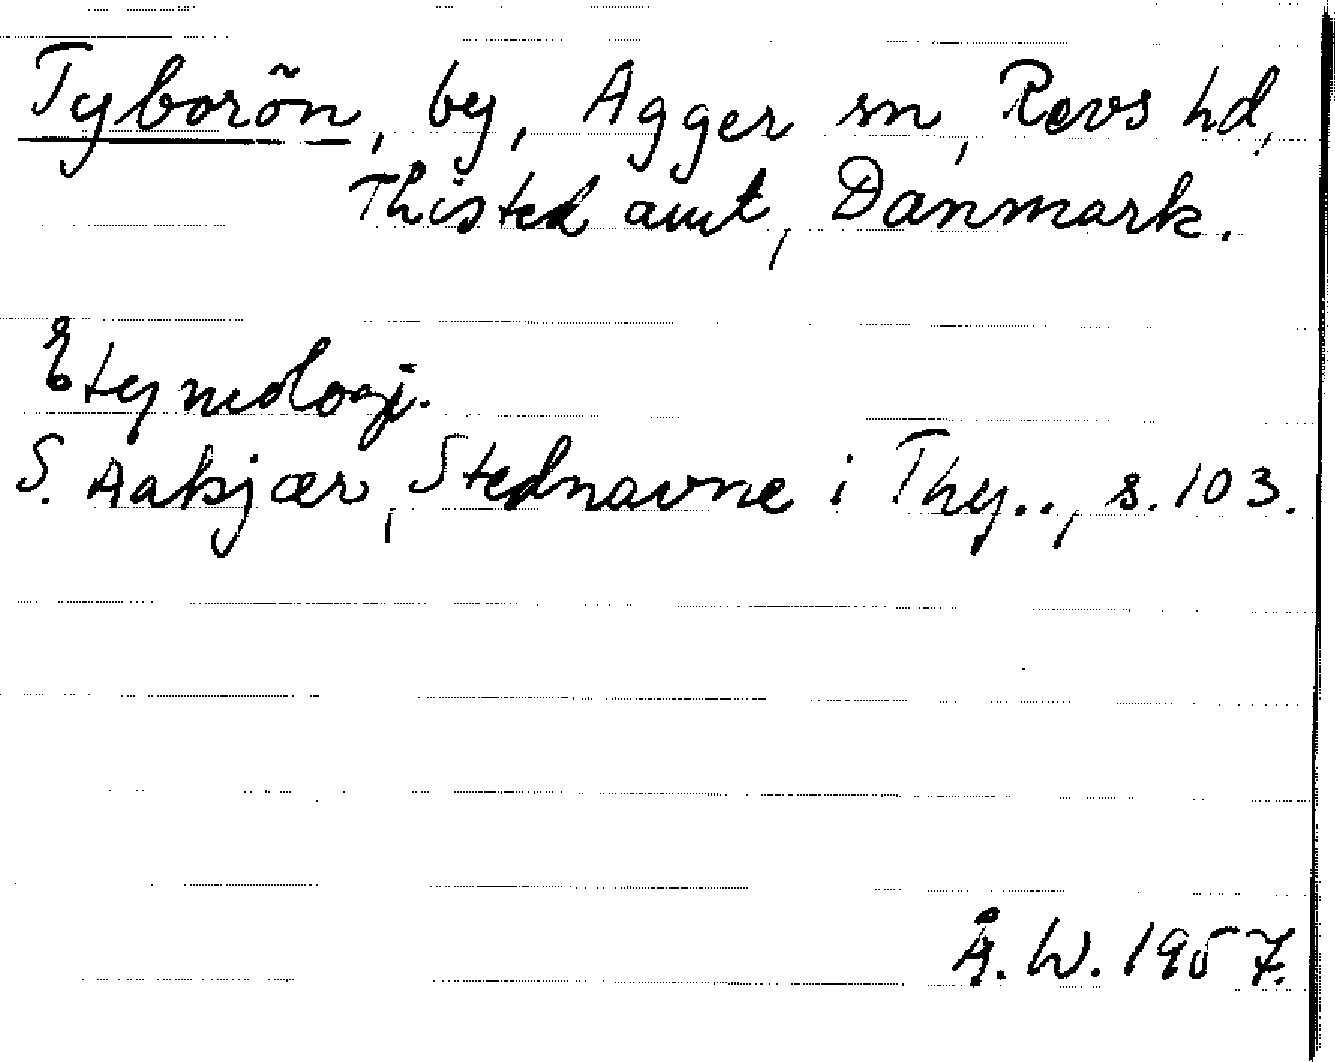 Tyborön, by, Agger sn, Revs hd,
Thisted amt, Danmark.
Etymologi.
S. Aakjær, Stednavne i Thy.., s. 103.
Å. W. 1957.